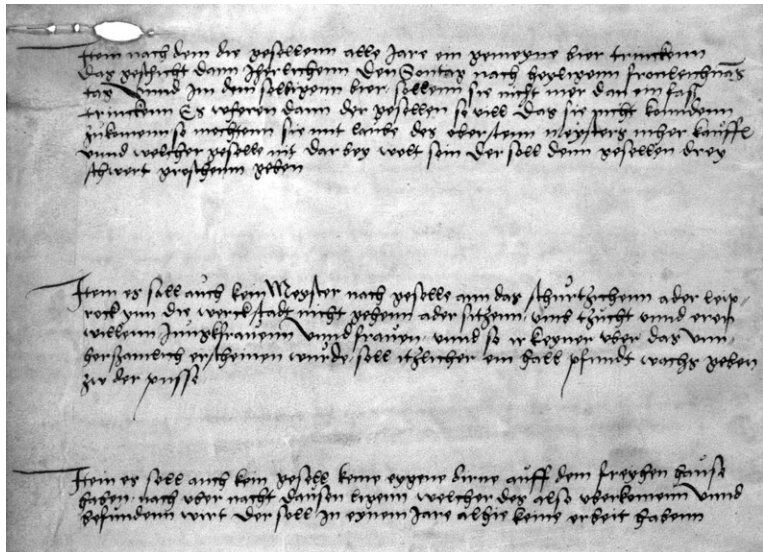 Item nach dem die gesellenn alle Jare ein gemeyne bier trinckenn
das geschicht dann Jherlichenn Den Sontag nach heyligenn fronleichnās
tag Vnnd Jm dem selbigenn bier sollenn sie nicht mer dan ein fass
trinckenn Es weren dann der gesellen so vill Das sie nicht kondenn
zukomenn so mochtenn sie mit laube des oberstenn meysters mher kauffē
vnnd welcher geselle nit dar bey wolt sein Der soll denn gesellen drey
schwert groschenn geben
Item es soll auch kein Meyster nach geselle ann das schurtzichenn ader leip-
rock ynn die werckstadt nicht gehenn ader sitzenn vmb tzucht vnnd eren
willenn Junckfrauenn vnnd frauen, vnnd so ir keyner vber das vnn-
erscheinen wurde, soll itzlicher ein halb pfundt wachs geben
zw der pusse
Item es soll auch kein gesell keine eygene dirne auff dem freyhen hause
haben, nach vber nacht dausen ligenn welcher des also vberkomenn vnnd
befundenn wirt Der soll Jn eynem Jare alhie keine erbeit habenn